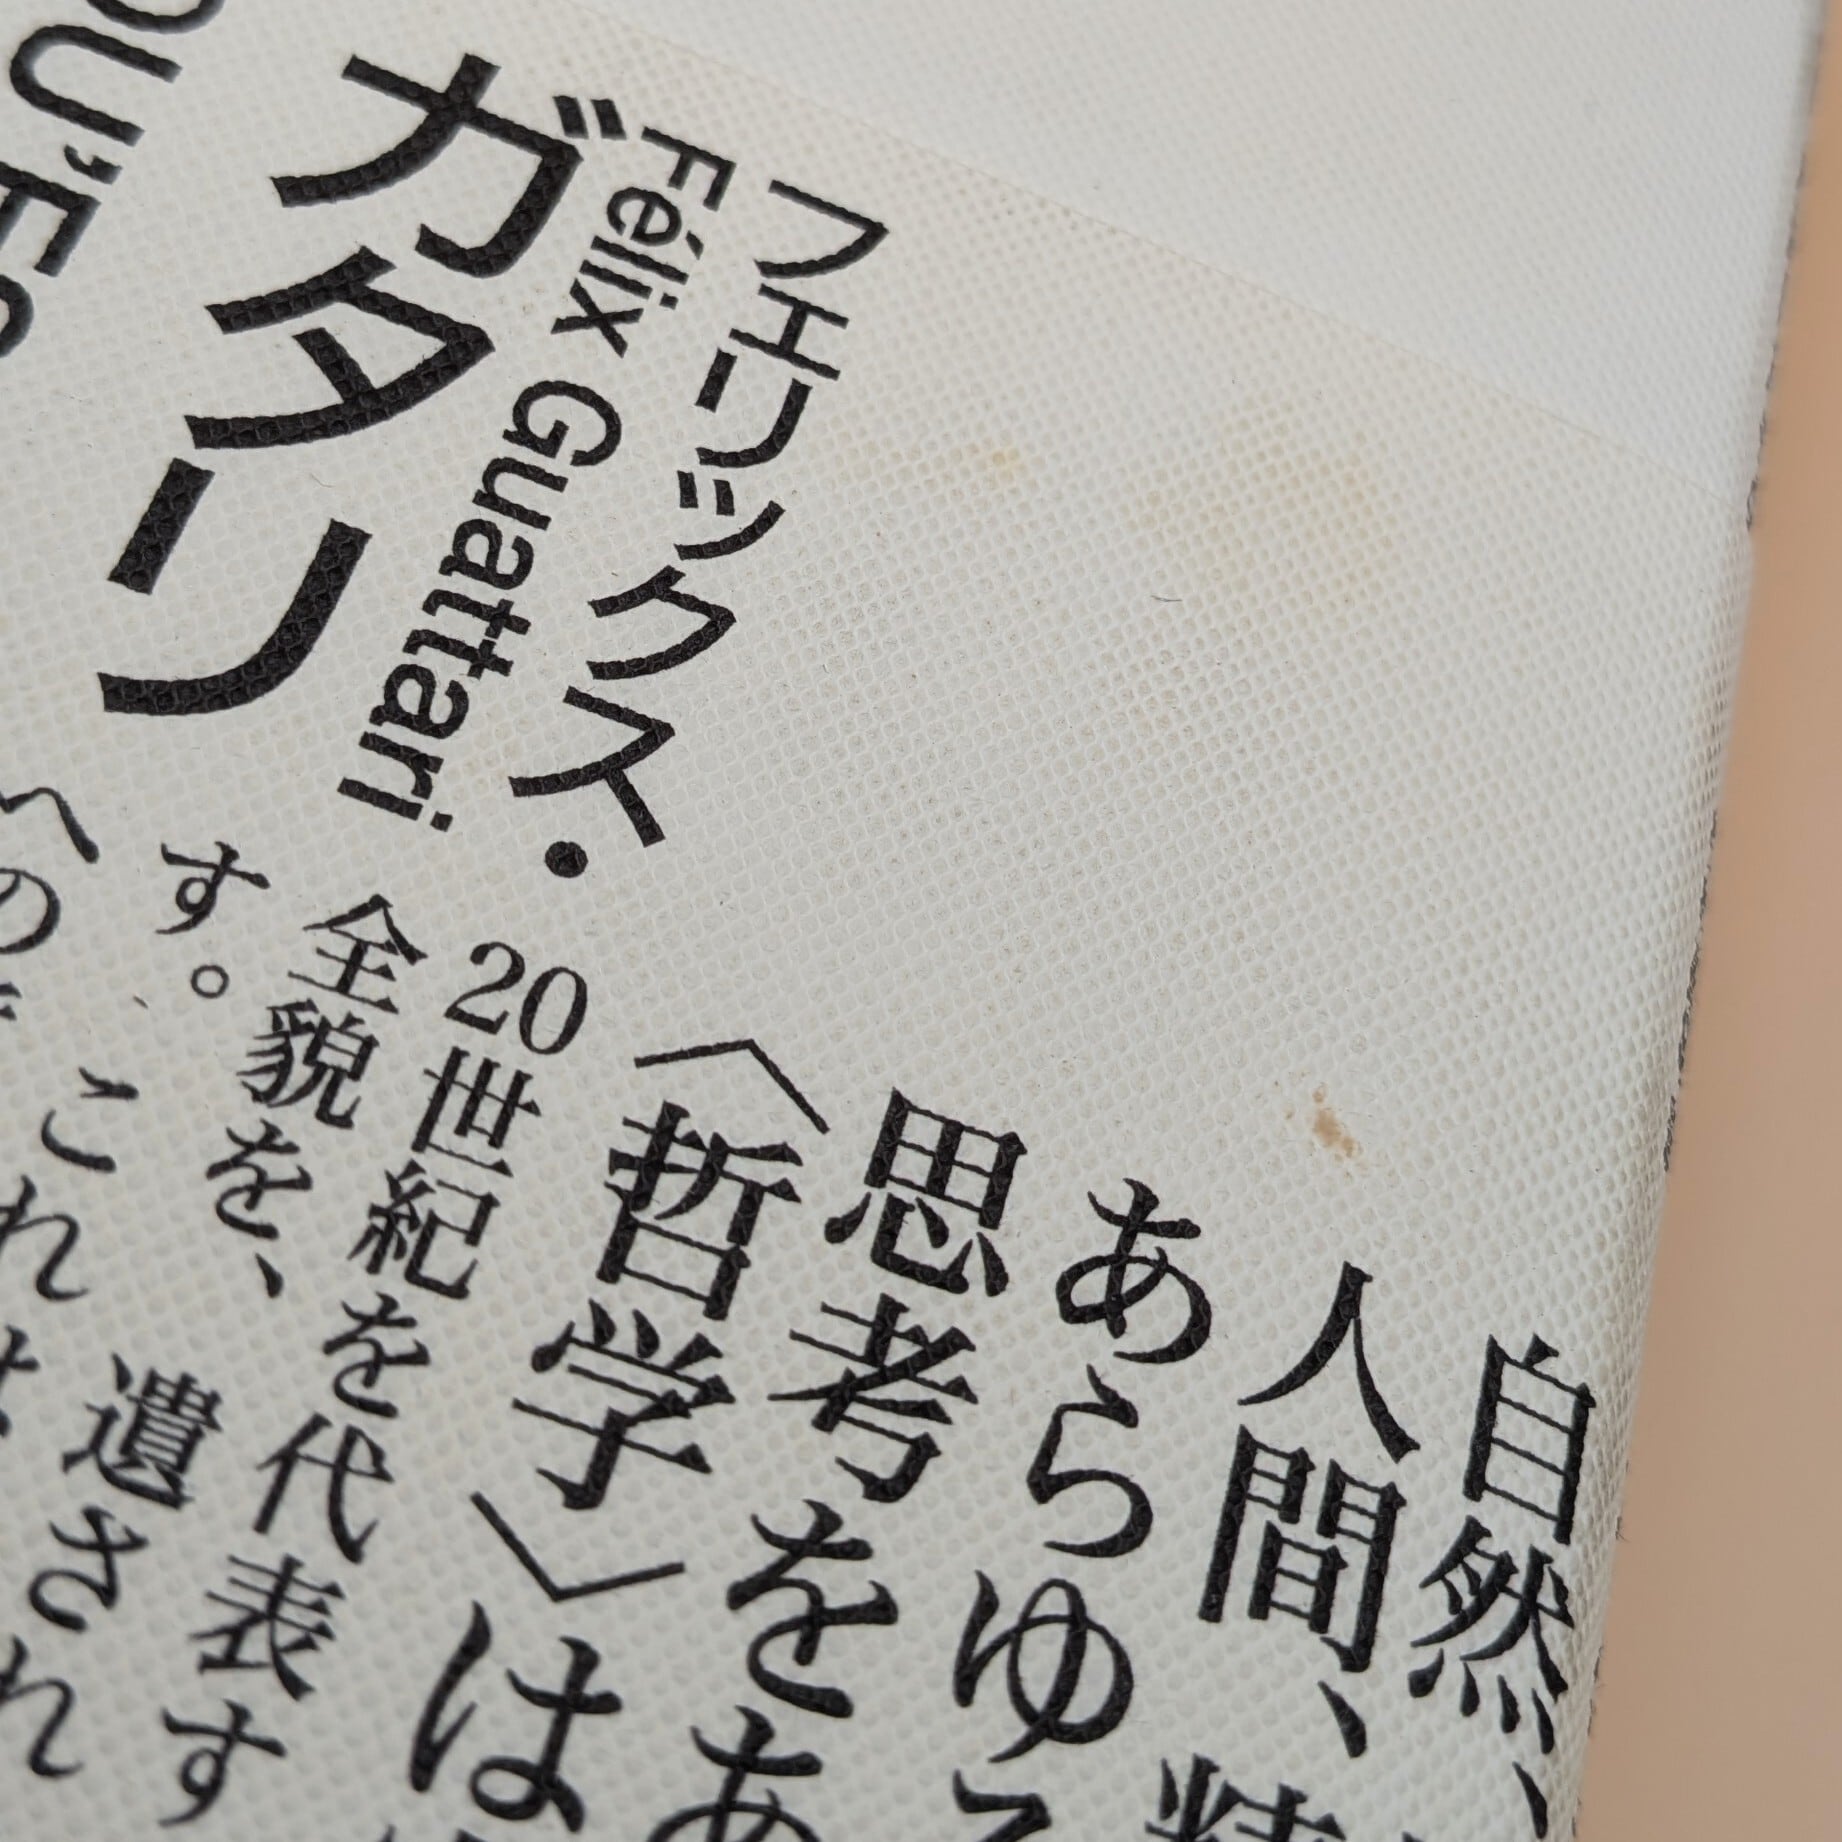 フェリックス・
Félix Guattari
ガタリ
OU'ES
自然、
人間、精
あらゆる
思考をあ
〈哲学〉は
20世紀を代表す
全貌を、遺され
す。これ
への